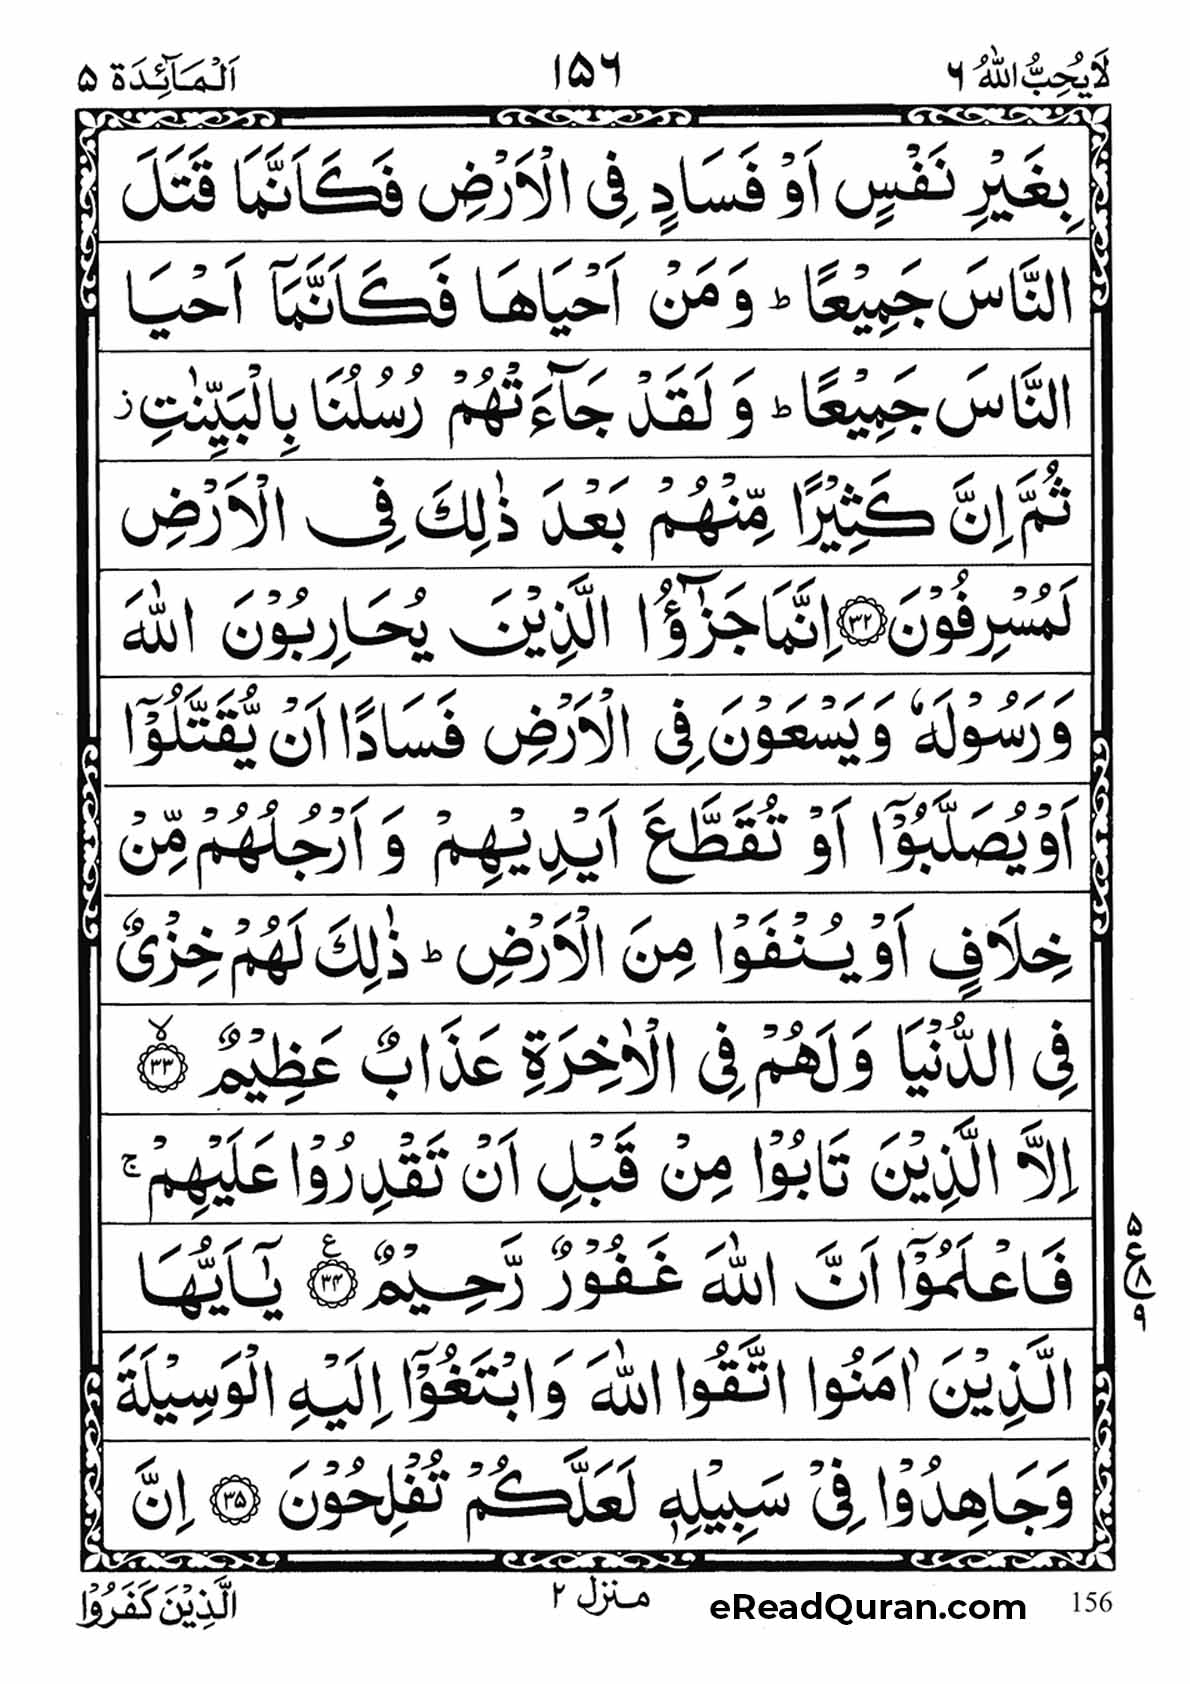 لَا يُحِبُّ اللّٰهُ ٦ ١٥٦ اَلْمَآئِدَة ٥
بِغَيْرِ نَفْسٍ اَوْ فَسَادٍ فِى الْاَرْضِ فَكَاَنَّمَا قَتَلَ
النَّاسَ جَمِيْعًا ؕ وَ مَنْ اَحْيَاهَا فَكَاَنَّمَاۤ اَحْيَا
النَّاسَ جَمِيْعًا ؕ وَ لَقَدْ جَآءَتْهُمْ رُسُلُنَا بِالْبَيِّنٰتِ ز
ثُمَّ اِنَّ كَثِيْرًا مِّنْهُمْ بَعْدَ ذٰلِكَ فِى الْاَرْضِ
لَمُسْرِفُوْنَ ٣٢ اِنَّمَا جَزٰٓؤُا الَّذِيْنَ يُحَارِبُوْنَ اللّٰهَ
وَ رَسُوْلَهٗ وَ يَسْعَوْنَ فِى الْاَرْضِ فَسَادًا اَنْ يُّقَتَّلُوْۤا
اَوْ يُصَلَّبُوْۤا اَوْ تُقَطَّعَ اَيْدِيْهِمْ وَ اَرْجُلُهُمْ مِّنْ
خِلَافٍ اَوْ يُنْفَوْا مِنَ الْاَرْضِ ؕ ذٰلِكَ لَهُمْ خِزْىٌ
فِى الدُّنْيَا وَ لَهُمْ فِى الْاٰخِرَةِ عَذَابٌ عَظِيْمٌ ۙ ٣٣
اِلَّا الَّذِيْنَ تَابُوْا مِنْ قَبْلِ اَنْ تَقْدِرُوْا عَلَيْهِمْ ۚ
فَاعْلَمُوْۤا اَنَّ اللّٰهَ غَفُوْرٌ رَّحِيْمٌ ع ٣٤ يٰۤاَيُّهَا
٥
ع ٨
٩
الَّذِيْنَ اٰمَنُوا اتَّقُوا اللّٰهَ وَ ابْتَغُوْۤا اِلَيْهِ الْوَسِيْلَةَ
وَ جَاهِدُوْا فِىْ سَبِيْلِهٖ لَعَلَّكُمْ تُفْلِحُوْنَ ٣٥ اِنَّ
156 eReadQuran.com منزل ٢ الَّذِيْنَ كَفَرُوْا